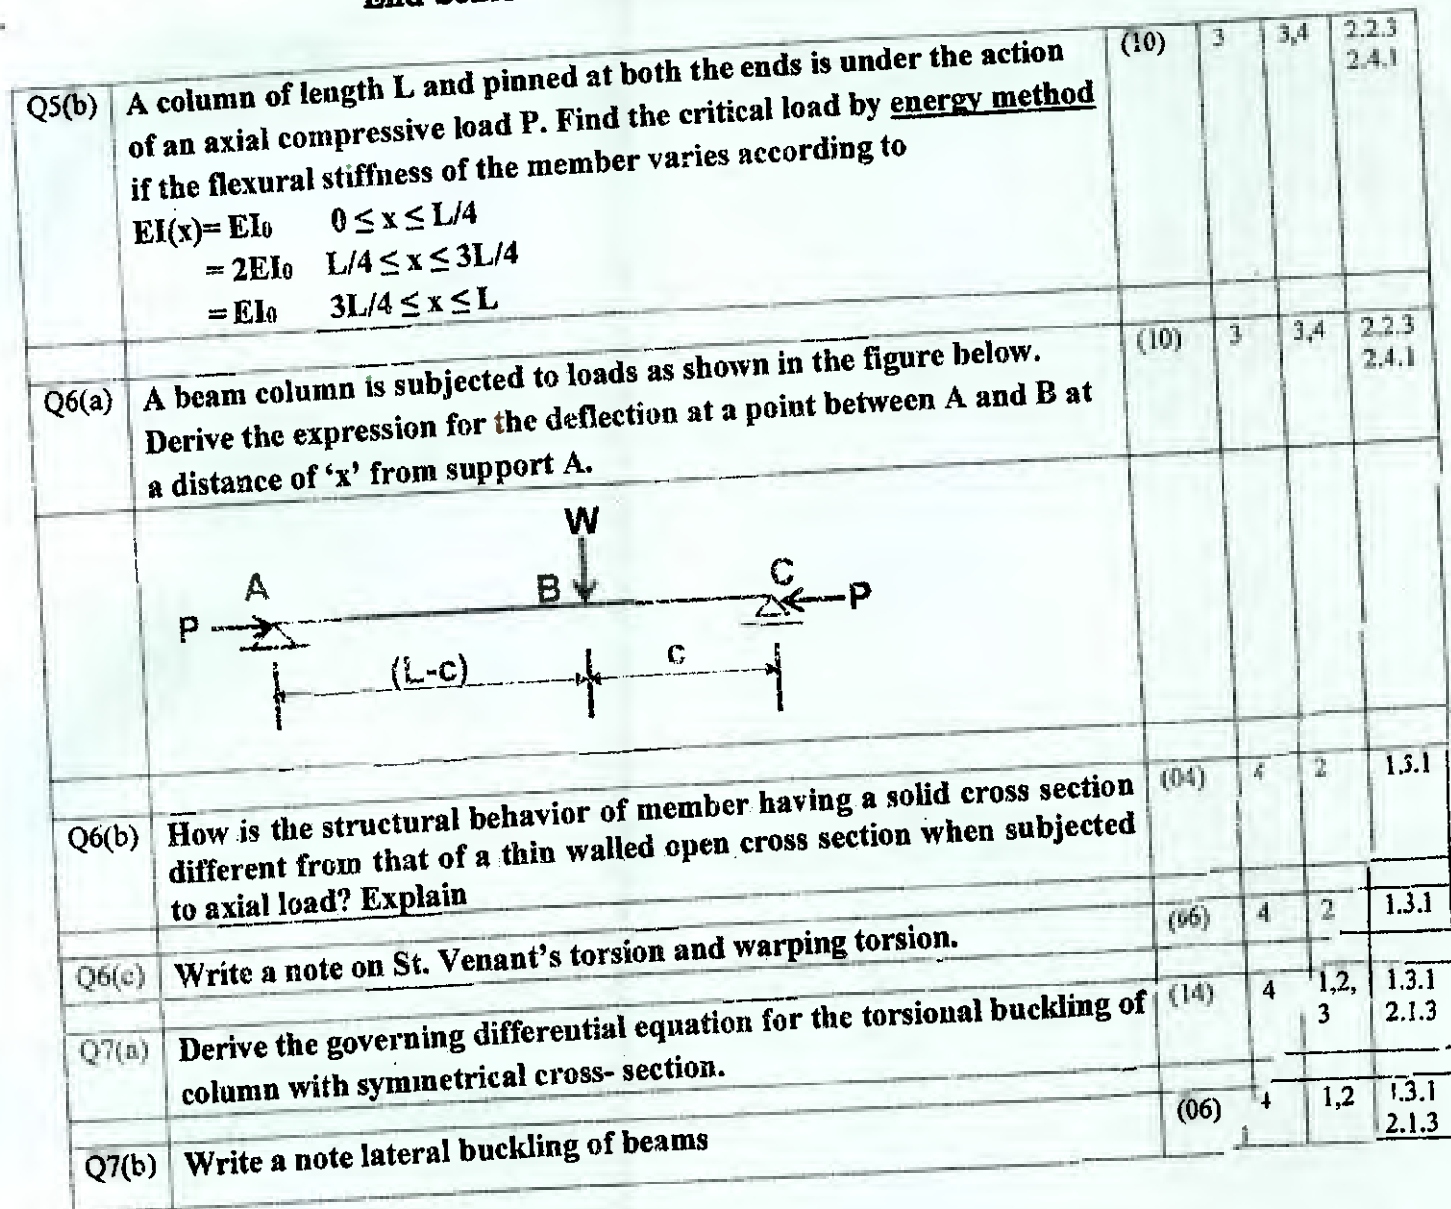 Q5(b) A column of length L and pinned at both the ends is under the action (10) 3 3,4 2.2.3
of an axial compressive load P. Find the critical load by energy method 2.4.1
if the flexural stiffness of the member varies according to
EI(x)= EI₀ 0 ≤ x ≤ L/4
= 2EI₀ L/4 ≤ x ≤ 3L/4
= EI₀ 3L/4 ≤ x ≤ L
Q6(a) A beam column is subjected to loads as shown in the figure below. (10) 3 3,4 2.2.3
Derive the expression for the deflection at a point between A and B at 2.4.1
a distance of ‘x’ from support A.
W
A B C
P P
(L-c) c
Q6(b) How is the structural behavior of member having a solid cross section (04) 4 2 1.3.1
different from that of a thin walled open cross section when subjected
to axial load? Explain
Q6(c) Write a note on St. Venant’s torsion and warping torsion. (06) 4 2 1.3.1
Q7(a) Derive the governing differential equation for the torsional buckling of (14) 4 1,2, 1.3.1
column with symmetrical cross- section. 3 2.1.3
Q7(b) Write a note lateral buckling of beams (06) 4 1,2 1.3.1
2.1.3